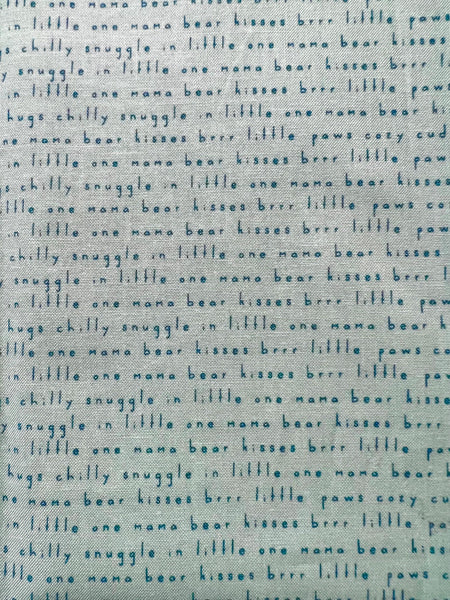 in little one mama bear kisses brrr little paws
little one mama bear kisses brrr little paws
s chilly snuggle in little one mama bear kisses
y snuggle in little one mama bear kisses brrr l
in little one mama bear kisses brrr little paws
hugs chilly snuggle in little one mama bear ki
ne mama bear kisses brrr little paws cozy cud
in little one mama bear kisses brrr little paw
s chilly snuggle in little one mama bear kisses
tle one mama bear kisses brrr little paws co
in little one mama bear kisses brrr little paw
chilly snuggle in little one mama bear kisses
y snuggle in little one mama bear kisses brrr l
in little one mama bear kisses brrr little paw
hugs chilly snuggle in little one mama bear k
tle one mama bear kisses brrr little paws co
in little one mama bear kisses brrr little pa
s chilly snuggle in little one mama bear kisses
y snuggle in little one mama bear kisses brrr
in little one mama bear kisses brrr little pa
hugs chilly snuggle in little one mama bear k
ne mama bear kisses brrr little paws cozy cud
in little one mama bear kisses brrr little pa
s chilly snuggle in little one mama bear kisses
tle one mama bear kisses brrr little paws co